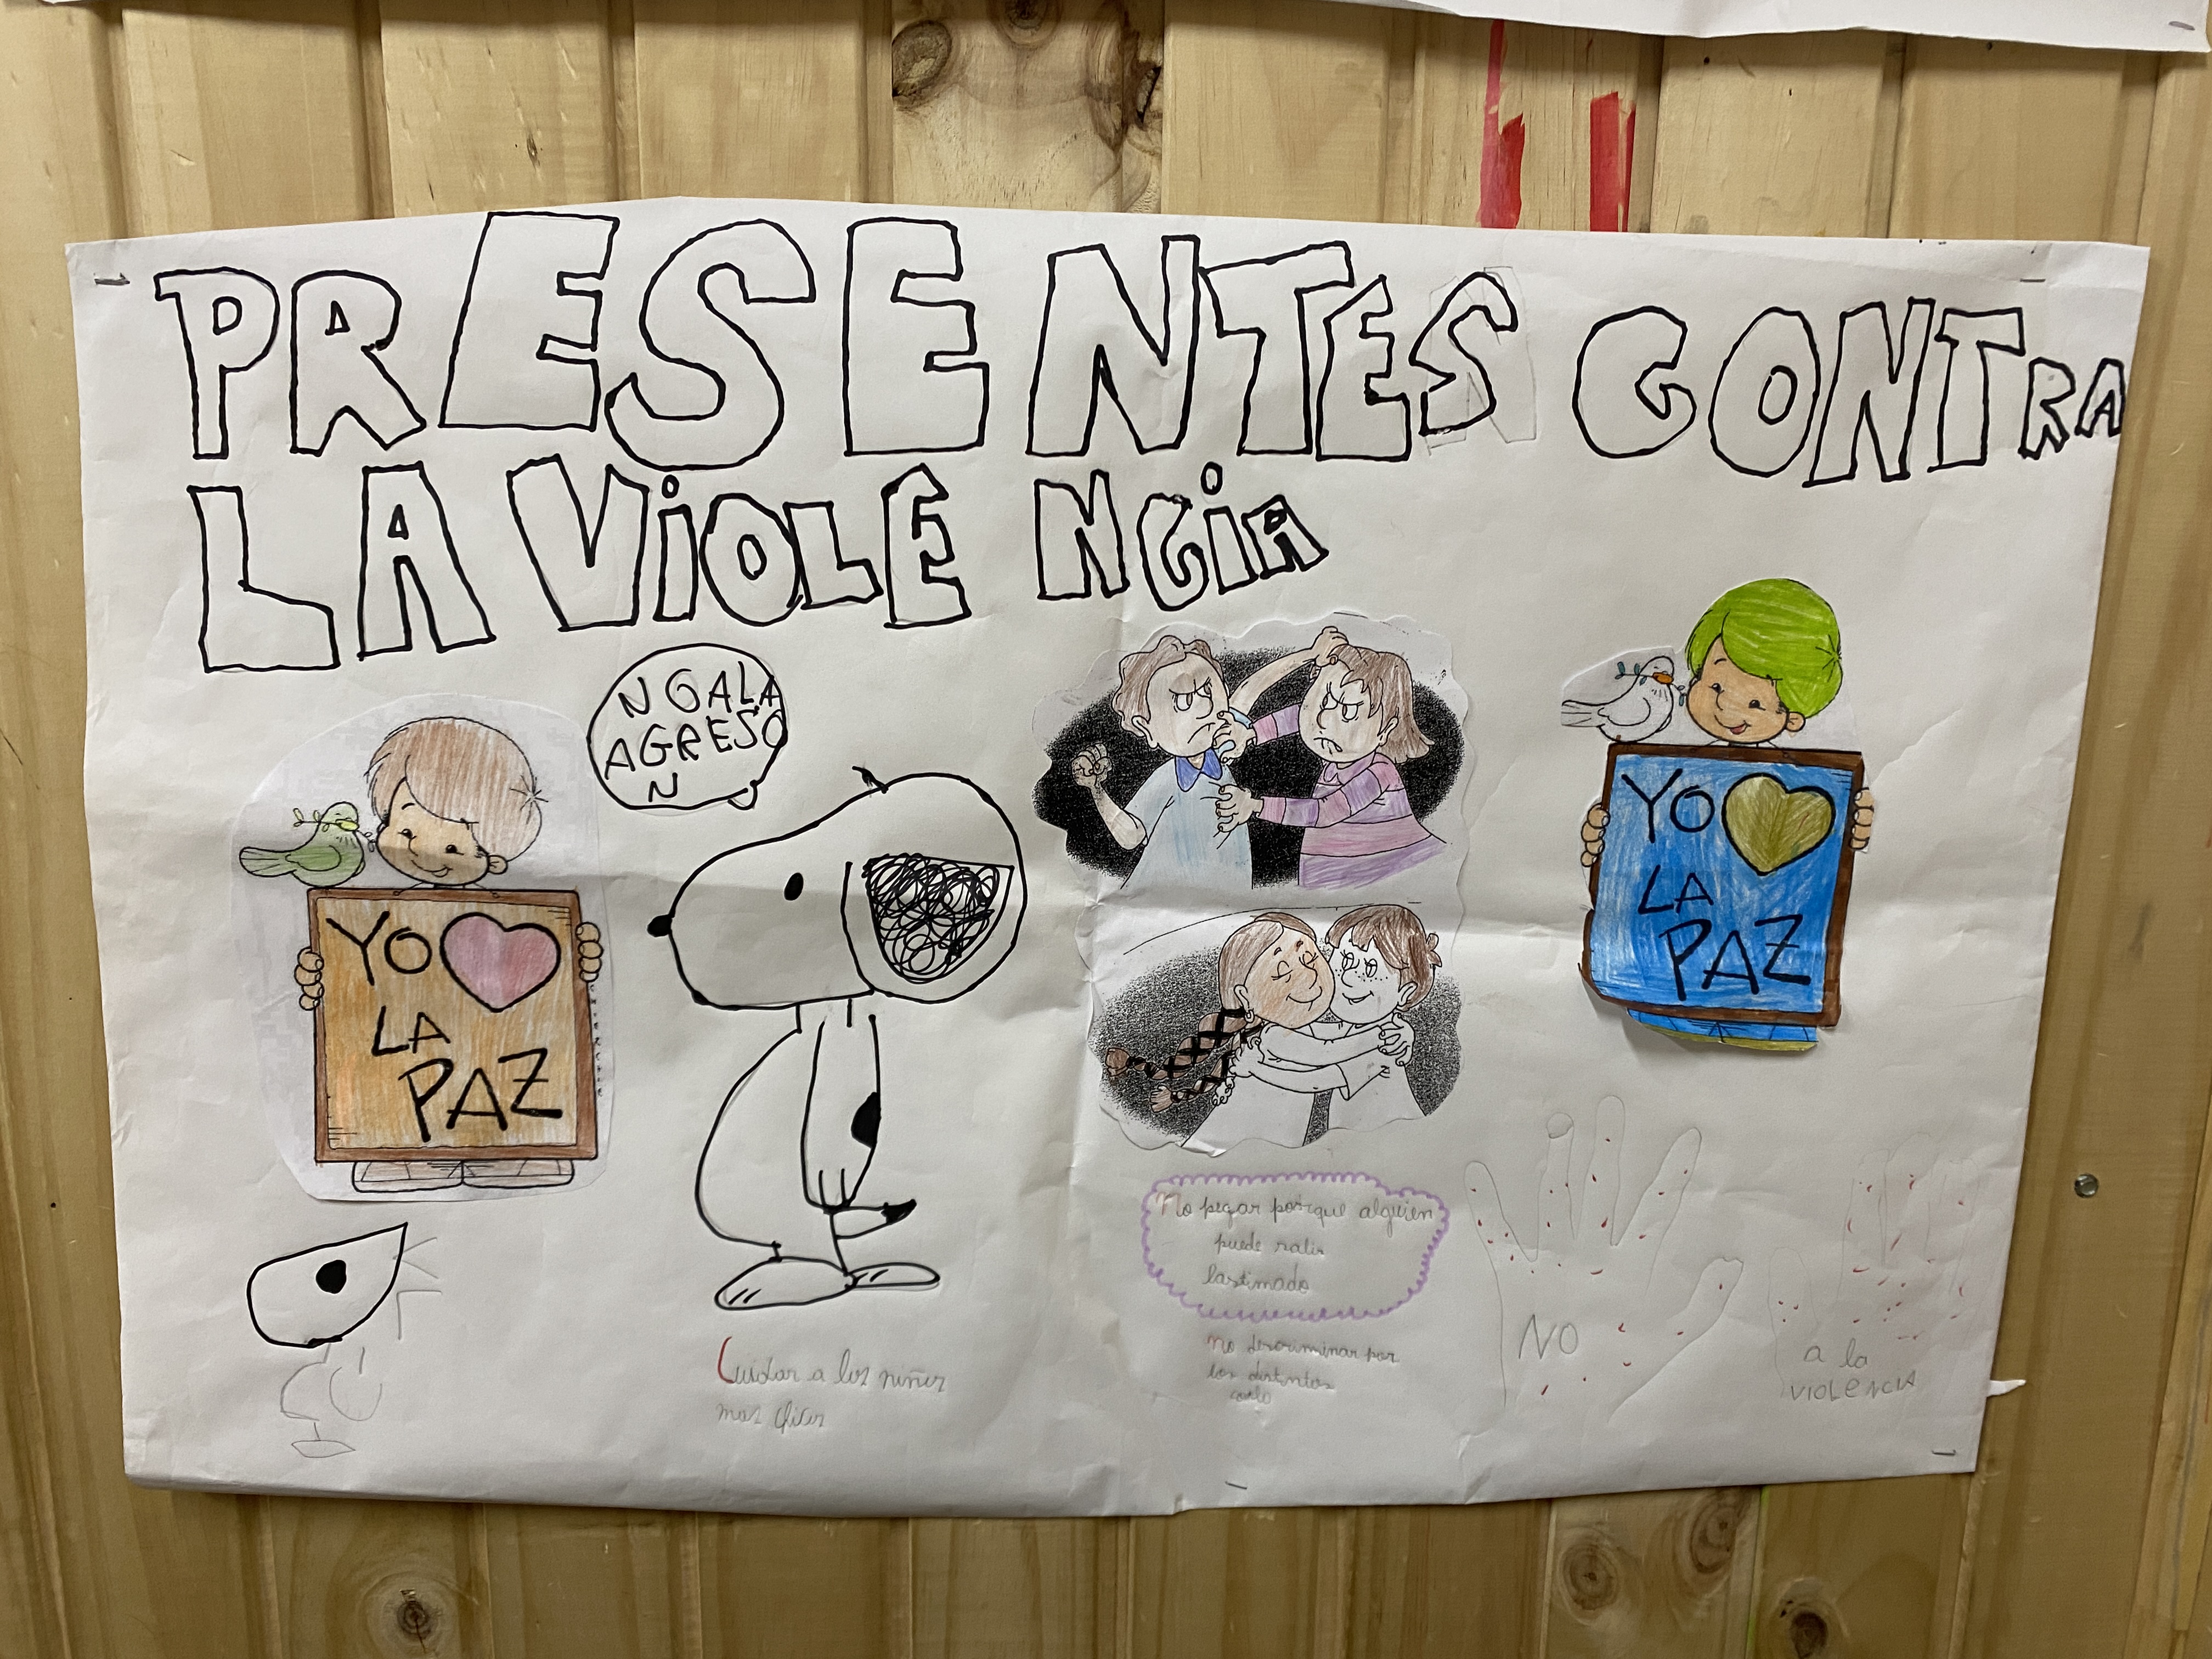 PRESENTES CONTRA
LA VIOLENCIA
NO A LA
AGRESO
N
YO
LA
PAZ
YO
LA
PAZ
No pegar porque alguien
puede salir
lastimado
no descriminar por
los distintos
Cuidar a los niños
mas chicos
NO
a la
VIOLENCIA